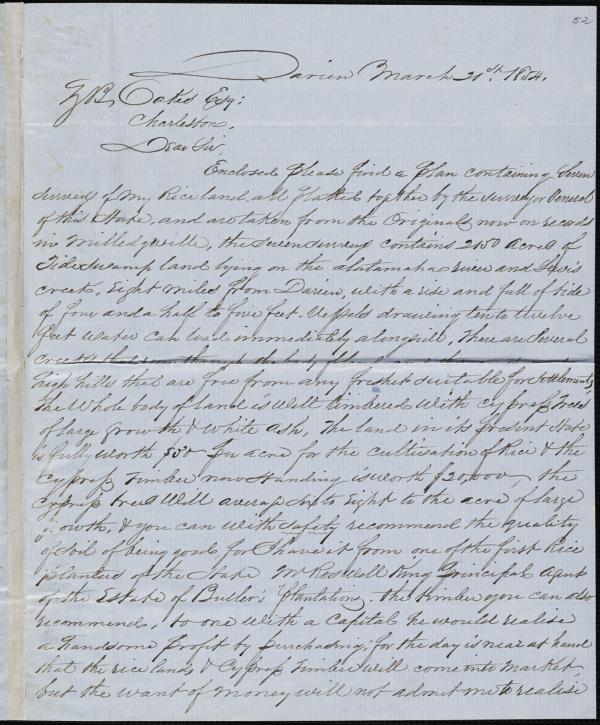 52
Darien March 21st. 1854.
Z B Oakes Esq:
Charleston.
Dear Sir.
Enclosed please find a plan containing Seven
surveys of my Rice land, all platted together by the surveyor General
of this State, and are taken from the Original, now on records
in Milledgeville, the seven surveys contains 2150 acres of
Tide Swamp land lying on the alatamaha river and Lewis
creek, Eight miles from Darien, with a rise and fall of tide
of four and a half to five feet. Vessels drawing ten to twelve
feet water can load immediately alongside, There are Several
creeks that run through the body
high hills that are free from any freshet suitable for settlements,
The Whole body of land is Well timbered With Cypress Trees
of large growth & White Ash, The land in its present State
is fully worth $50 per acre for the cultivation of Rice & the
Cypress Timber now Standing is worth $20,000, the
Cypress trees Will average six to Eight to the acre of large
growth, & you can with safety recommend the quality
of Soil of being good for I have it from one of the first Rice
planters of the State Mr Roswell King Principal Agent
of the Estate of Butler's plantation. the timber you can also
recommend, to one with a Capital he would realise
a handsome profit by purchasing; for the day is near at hand
that the rice lands & Cypress Timber will come into market,
but the want of money will not admit me to realise